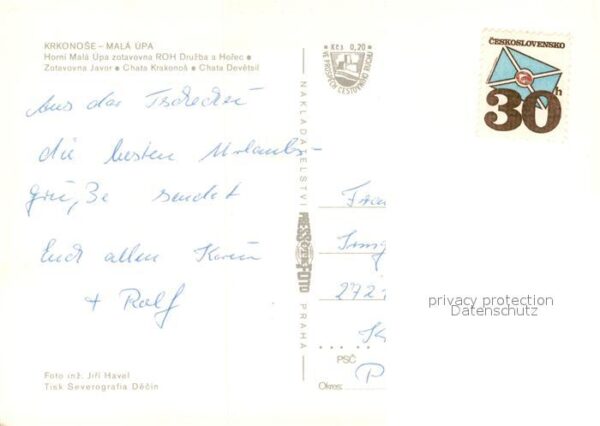 KRKONOŠE – MALÁ ÚPA
Horní Malá Úpa zotavovna ROH Družba a Hořec •
Zotavovna Javor • Chata Krakonoš • Chata Devětsil
Kčs 0,20
VE PROSPĚCH CESTOVNÍHO RUCHU
ČESKOSLOVENSKO
30h
Aus der Tschechei
die besten Urlaubs-
grüße sendet
Euch allen Karin
+ Ralf
NAKLADATELSTVÍ PRESSFOTO PRAHA
272
privacy protection
Datenschutz
PSČ
Okres:
Foto inž. Jiří Havel
Tisk Severografia Děčín